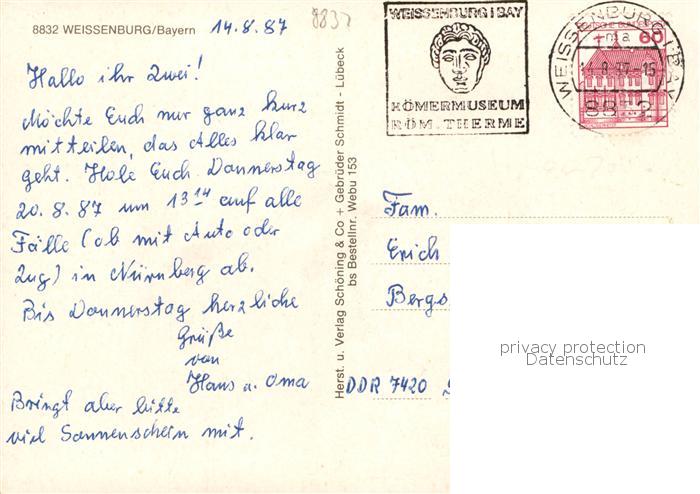 8832 WEISSENBURG/Bayern
14.8.87
8832
Hallo ihr zwei!
Möchte Euch nur ganz kurz
mitteilen, das Alles klar
geht. Hole Euch Donnerstag
20.8.87 um 13 14 auf alle
Fälle (ob mit Auto oder
Zug) in Nürnberg ab.
Bis Donnerstag herzliche
Grüße
von
Hans u. Oma
Bringt aber bitte
viel Sonnenschein mit.
Herst. u. Verlag Schöning & Co + Gebrüder Schmidt - Lübeck
bs Bestellnr. Webu 153
WEISSENBURG I BAY
RÖMERMUSEUM
RÖM. THERME
WEISSENBURG I BAY
60
Fam.
Erich
Bergs
DDR 7420
privacy protection
Datenschutz